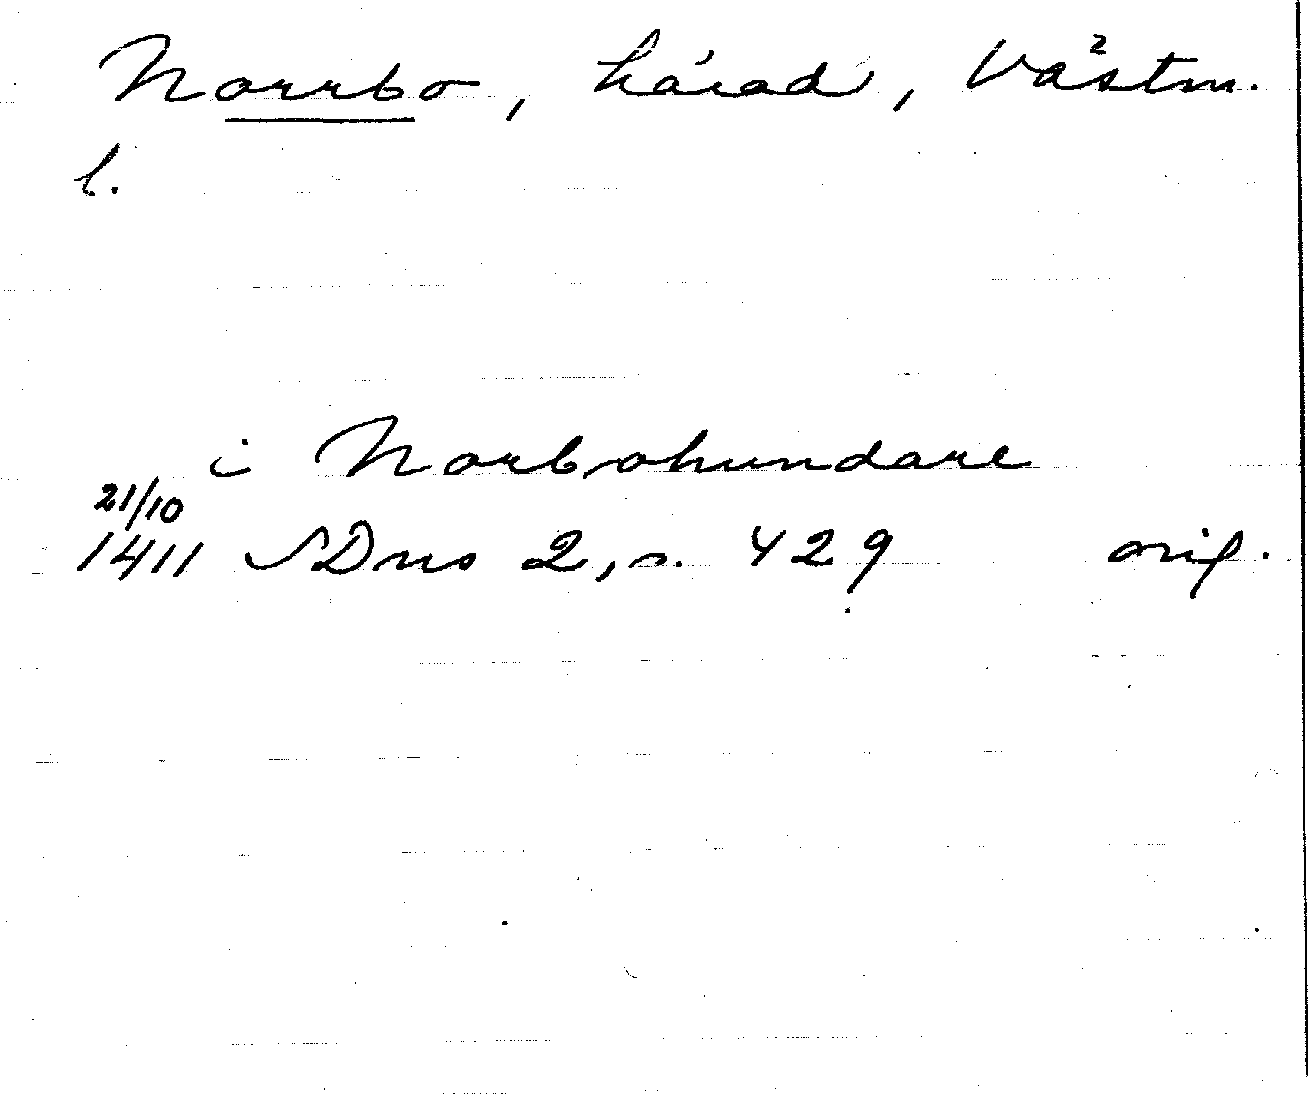 Norrbo, härad, Västm.
l.
i Norbohundare
21/10
1411 SDns 2, s. 429 orig.